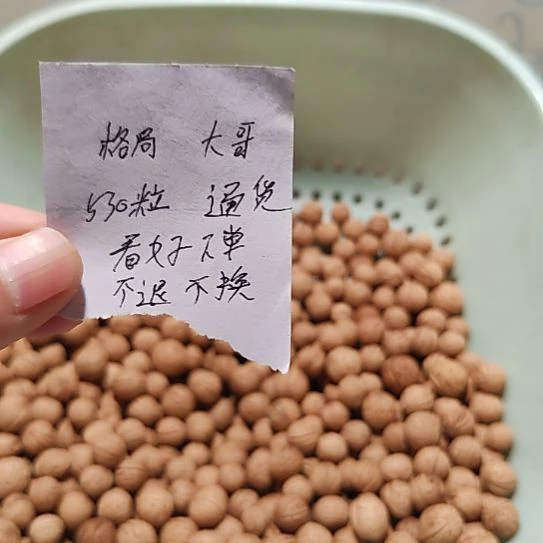 格局 大哥
530粒 通货
看好下单
不退 不换